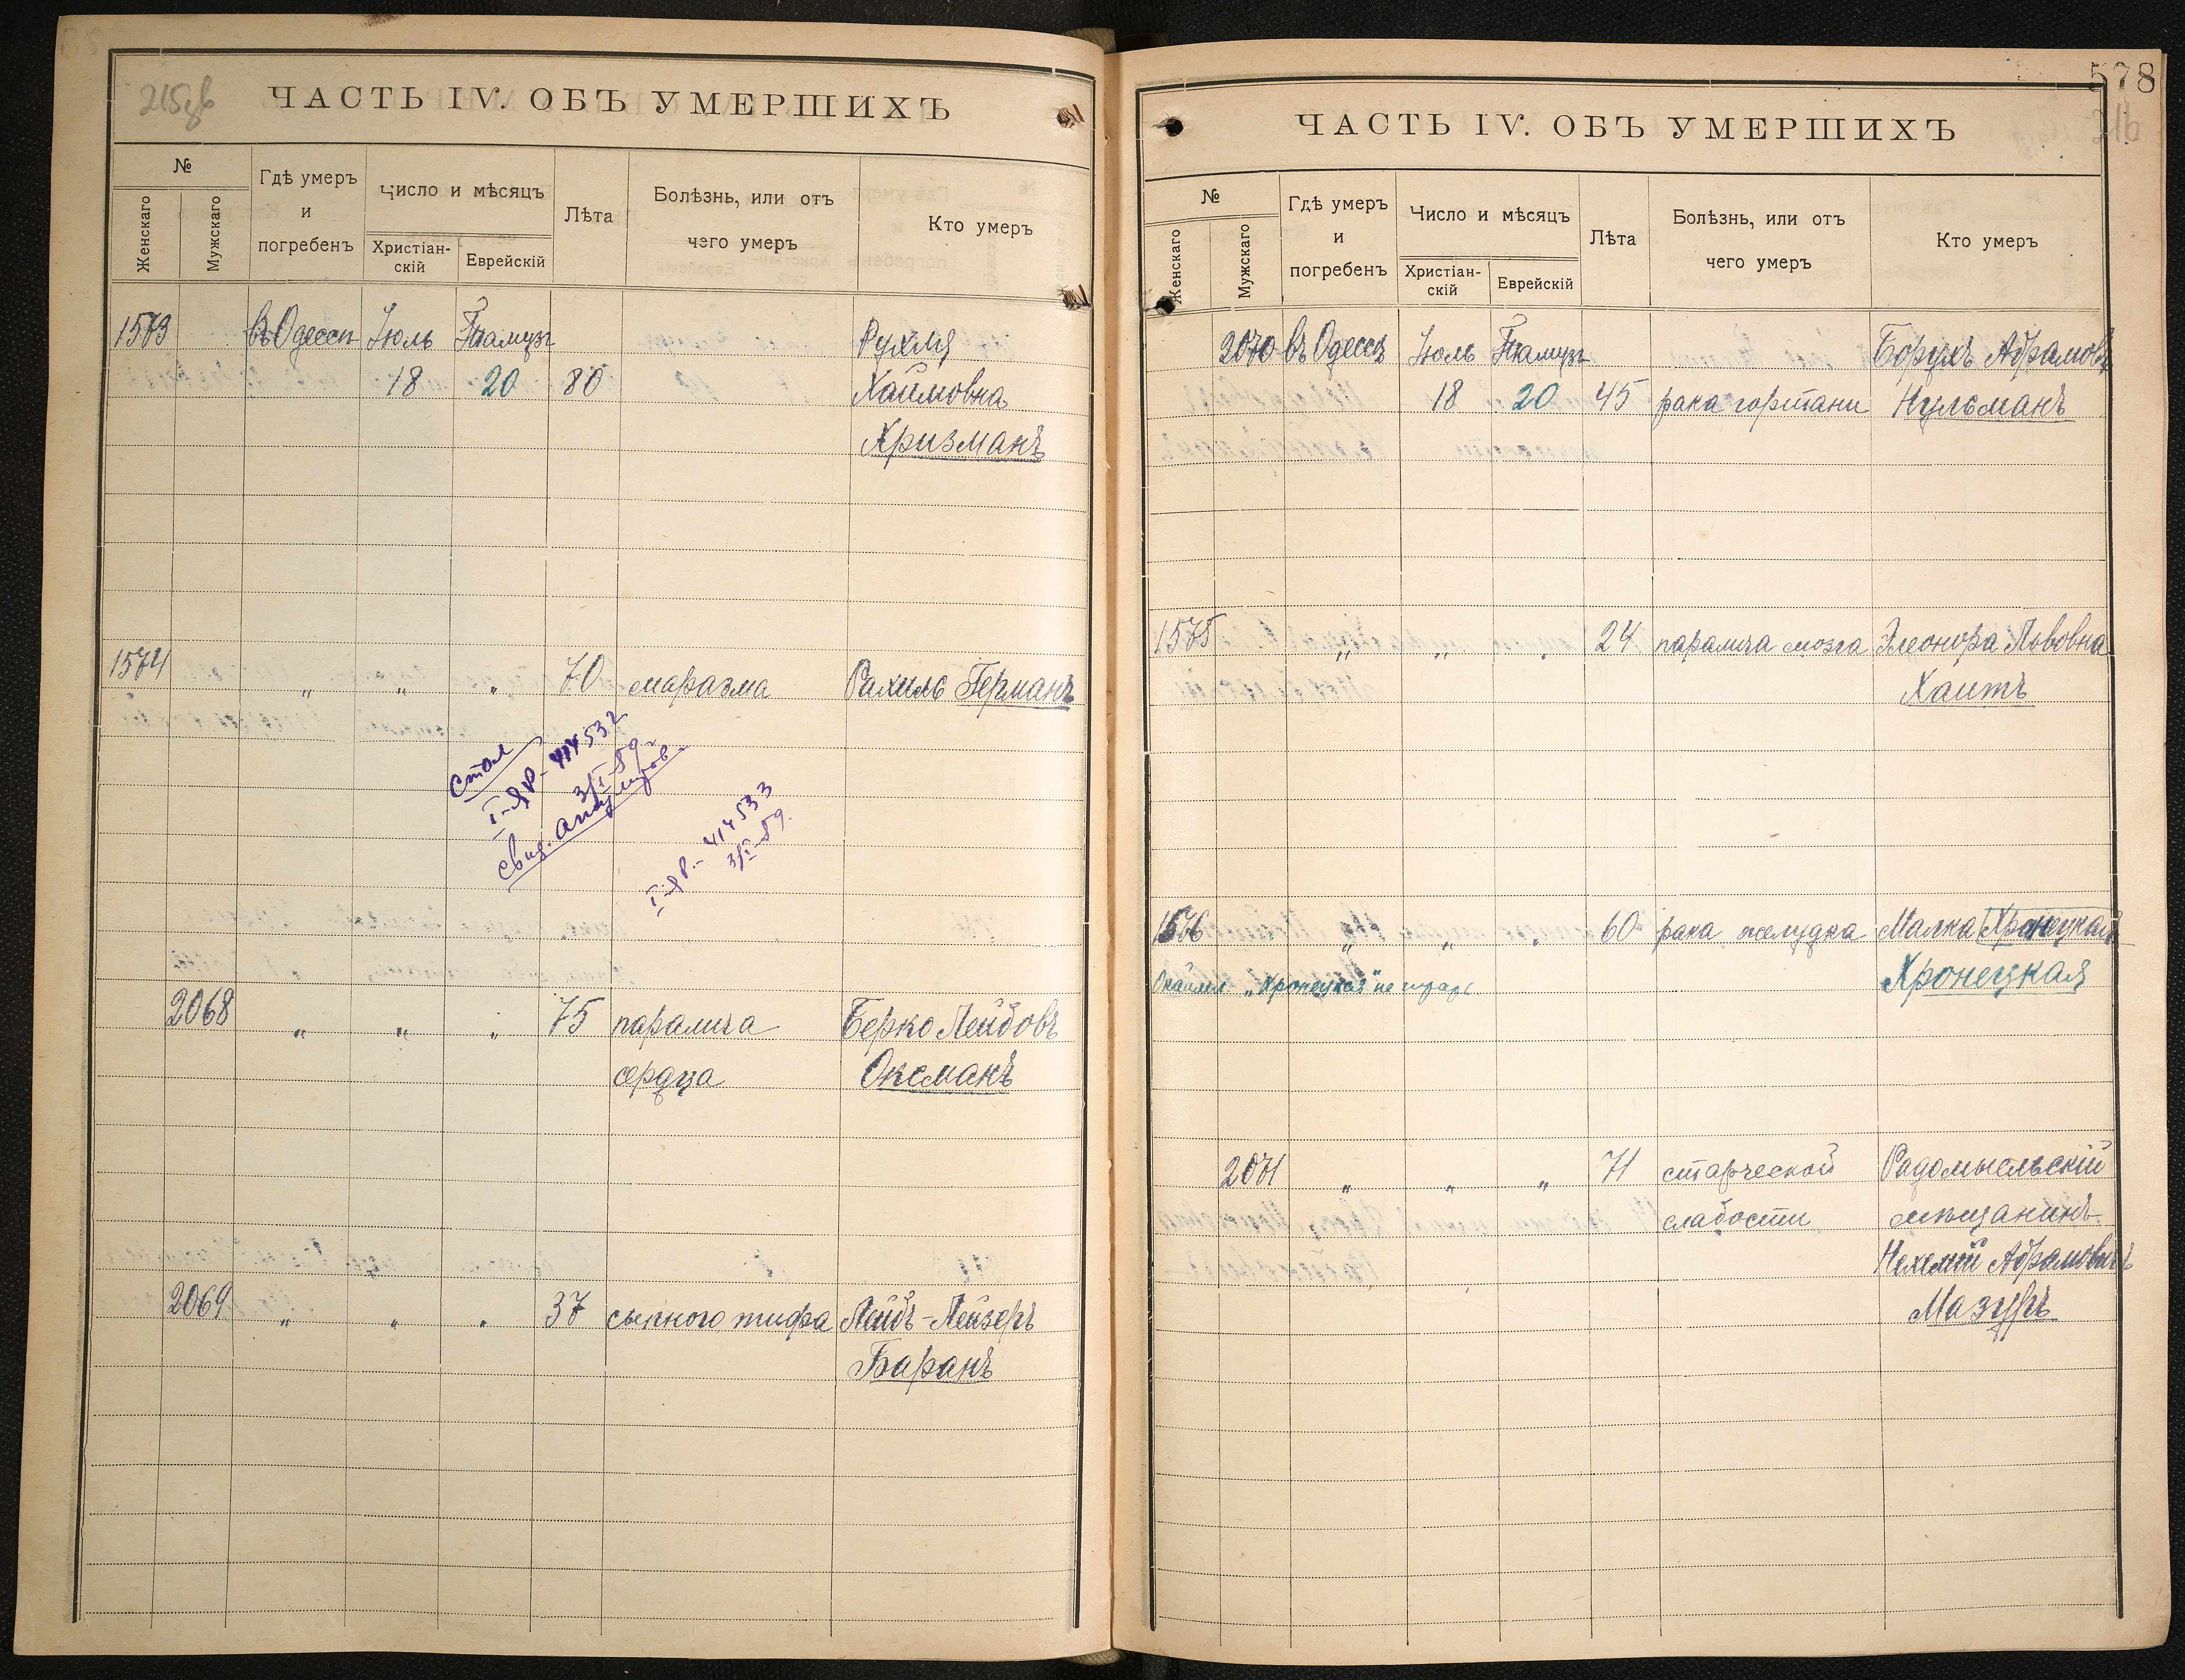 215об
ЧАСТЬ IV. ОБЪ УМЕРШИХЪ
№
Женскаго
Мужскаго
Гдѣ умеръ
и
погребенъ
Число и мѣсяцъ
Христіан-
скій
Еврейскій
Лѣта
Болѣзнь, или отъ
чего умеръ
Кто умеръ
1573 въ Одессѣ Іюль Тамузъ Рухля
18 20 80 Хаимовна
Хризманъ
1574 " " " 70 маразма Рахиль Германъ
I-ЯР- 414532
3/I-59.
I-ЯР.- 414533
3/I-59.
2068 " " " 75 паралича Берко Лейбовъ
сердца Оксманъ
2069 " " " 37 сыпного тифа Лейбъ-Лейзеръ
Баранъ
578
216
ЧАСТЬ IV. ОБЪ УМЕРШИХЪ
№
Женскаго
Мужскаго
Гдѣ умеръ
и
погребенъ
Число и мѣсяцъ
Христіан-
скій
Еврейскій
Лѣта
Болѣзнь, или отъ
чего умеръ
Кто умеръ
2070 въ Одессѣ Іюль Тамузъ Борухъ Абрамовъ
18 20 45 рака гортани Нульманъ
1575 " " " 24 паралича мозга Элеонора Львовна
Хаитъ
1576 " " " 60 рака желудка Малка Хронецкая
"Хронецкая" не Хронецкая
2071 " " " 71 старческой Радомысльскій
слабости мѣщанинъ
Нехемій Абрамовичъ
Мазуръ